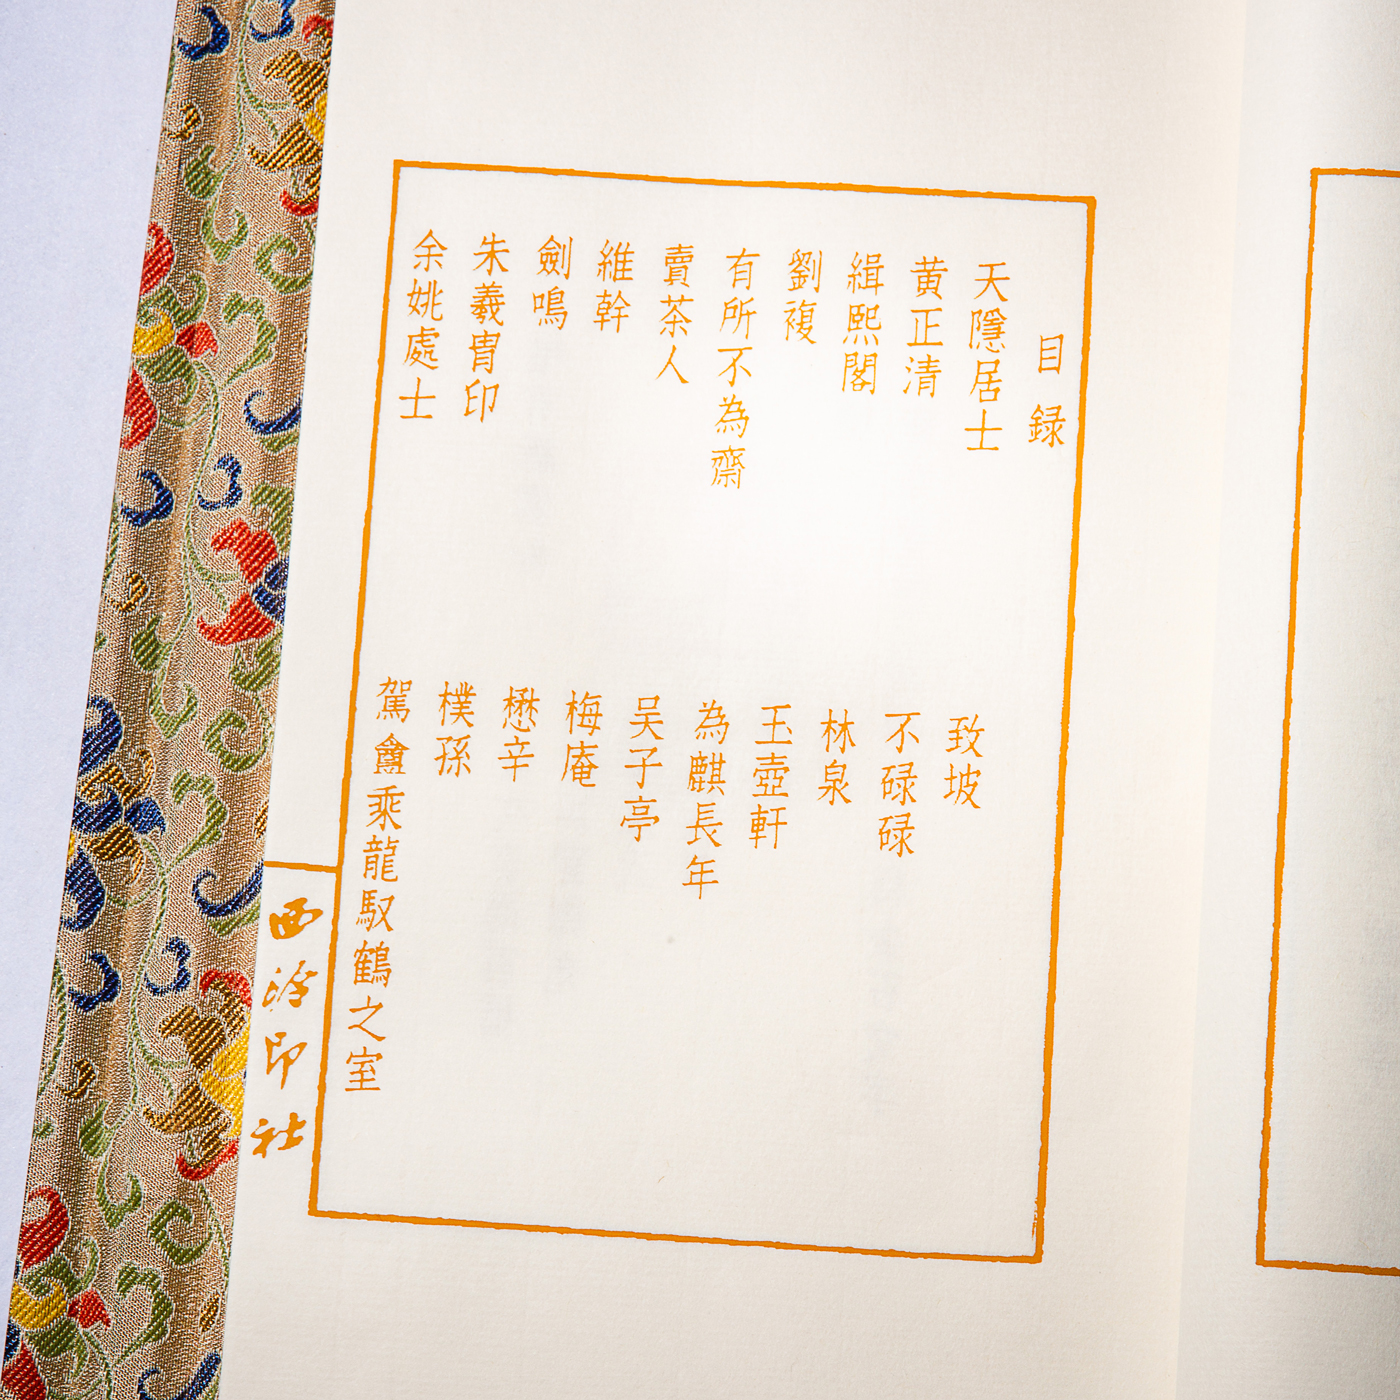 目録
天隱居士
黄正清
緝熙閣
劉複
有所不為齋
賣茶人
維幹
劍鳴
朱羲胄印
余姚處士
致坡
不碌碌
林泉
玉壺軒
為麒長年
吴子亭
梅庵
懋辛
樸孫
駕鱻乘龍馭鶴之室
西泠印社